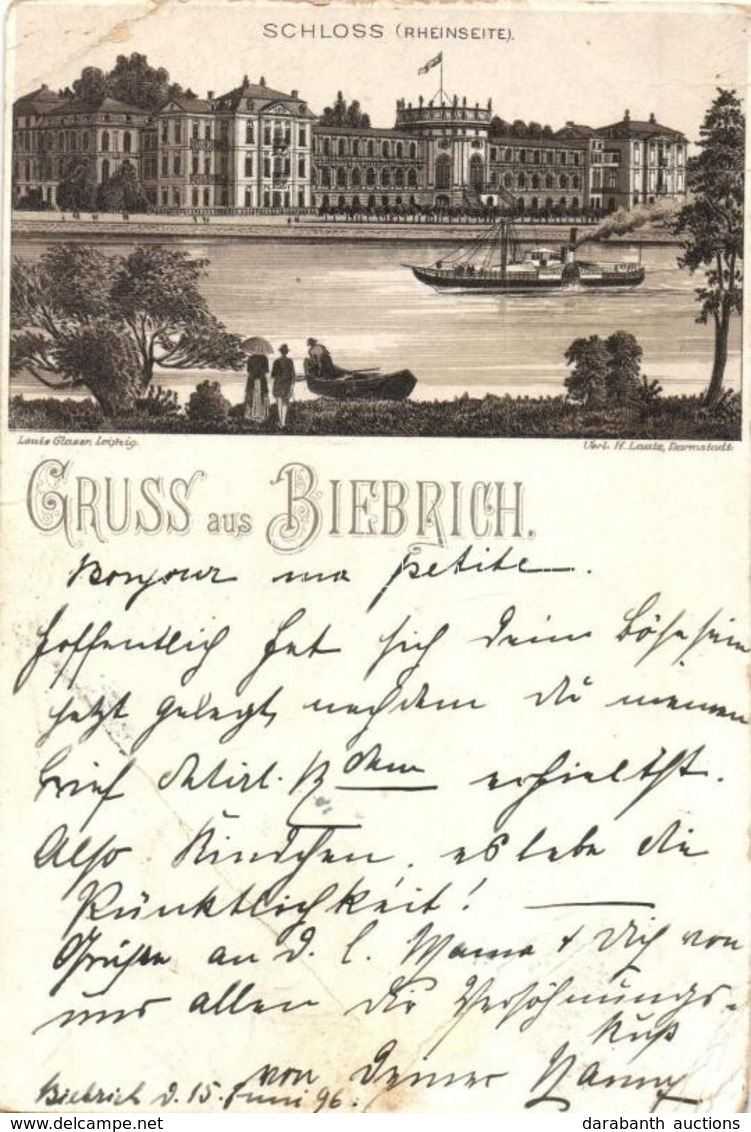 SCHLOSS (RHEINSEITE).
Louis Glaser, Leipzig.
Verl. H. Laatz, Darmstadt.
GRUSS aus BIEBRICH.
Bonjour ma petite.
Hoffentlich hat sich dein Bösesein
jetzt gelegt, nachdem du meinen
Brief datirt. dem erhieltst.
Also Kindchen, es lebe die
Pünktlichkeit!
Grüße an d. l. Mama & Dich von
uns allen die Versöhnungs-
kuß
von Deiner
Biebrich d. 15. Juni 96.
darabanth auctions